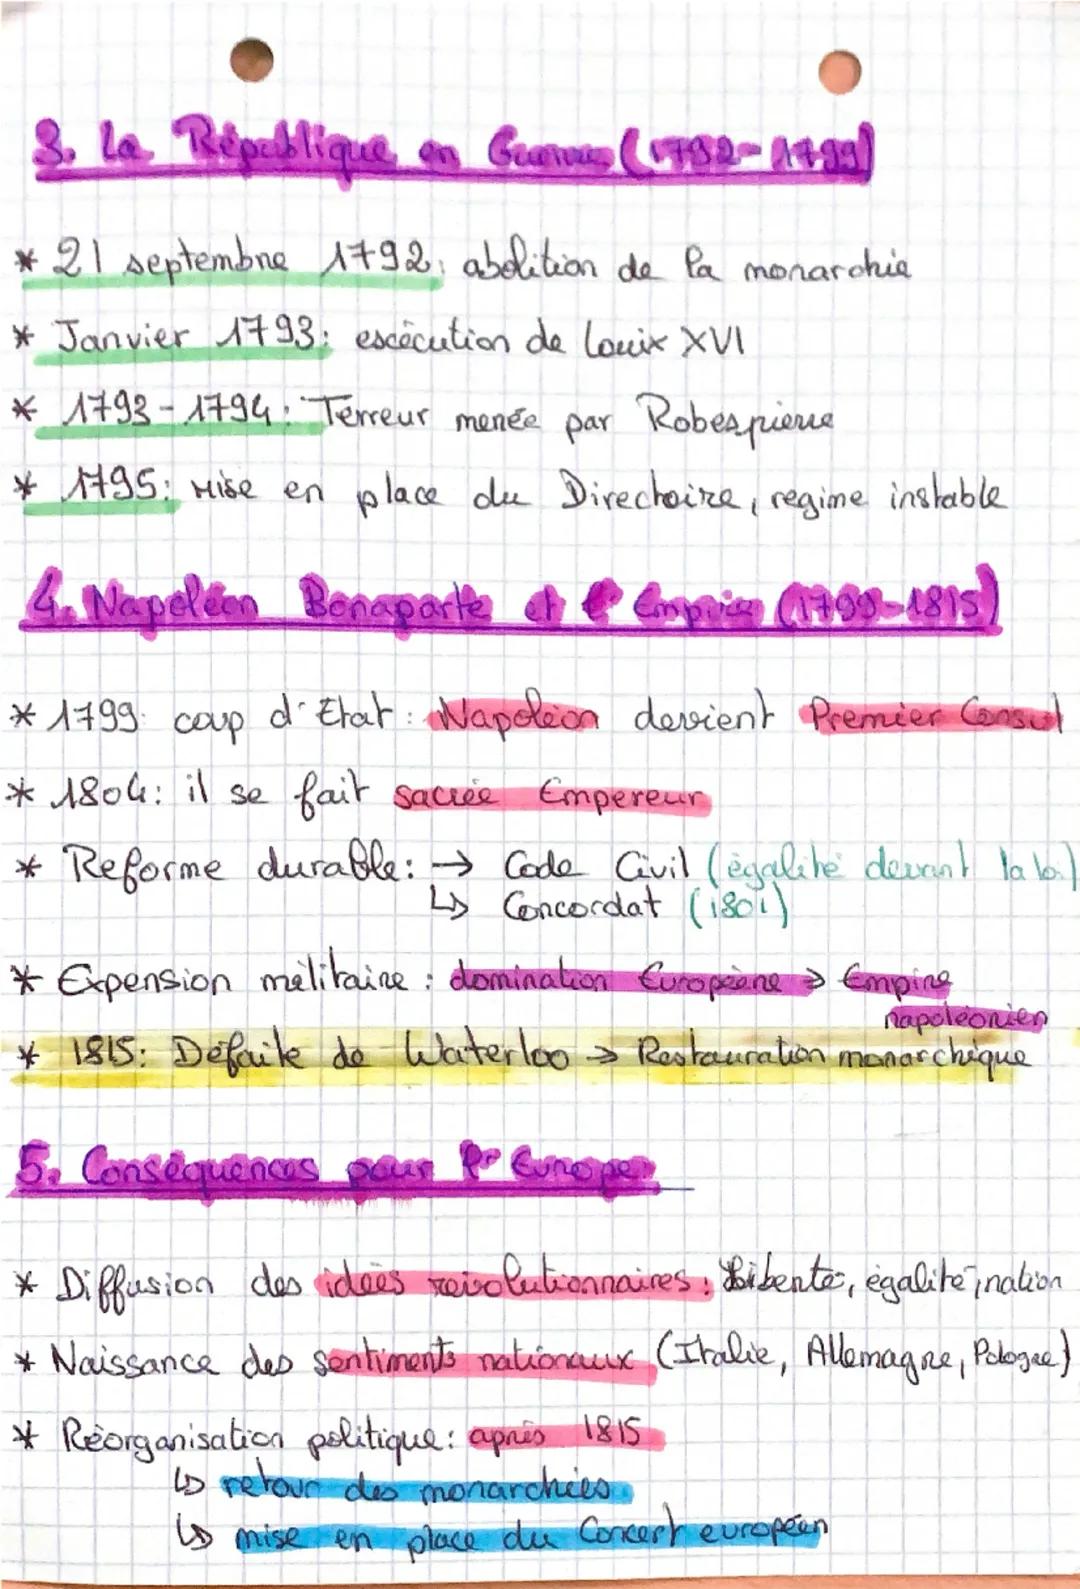 3. La République en Guerre (1792-1799)
* 21 septembre 1792: abolition de la monarchie
* Janvier 1793: escécution de Louix XVI
* 1793-1794: Terreur menée par Robespierre
* 1795: Mise en place du Directoire, regime instable
4. Napoléon Bonaparte et l'Empire (1799-1815)
* 1799: coup d'Etat: Napoléon devient Premier Consul
* 1804: il se fait sacrée Empereur
* Reforme durable: → Code Civil (égalité devant la loi)
↳ Concordat (1801)
* Expension mélitaire: domination Européene → Empire
napoléonien
* 1815: Défaite de Waterloo → Restauration monarchique
5. Conséquences pour l'Europe
* Diffusion des idées révolutionnaires: liberté, égalité, nation
* Naissance des sentiments nationaux (Italie, Allemagne, Pologne)
* Réorganisation politique: après 1815
↳ retour des monarchies
↳ mise en place du Concert européen